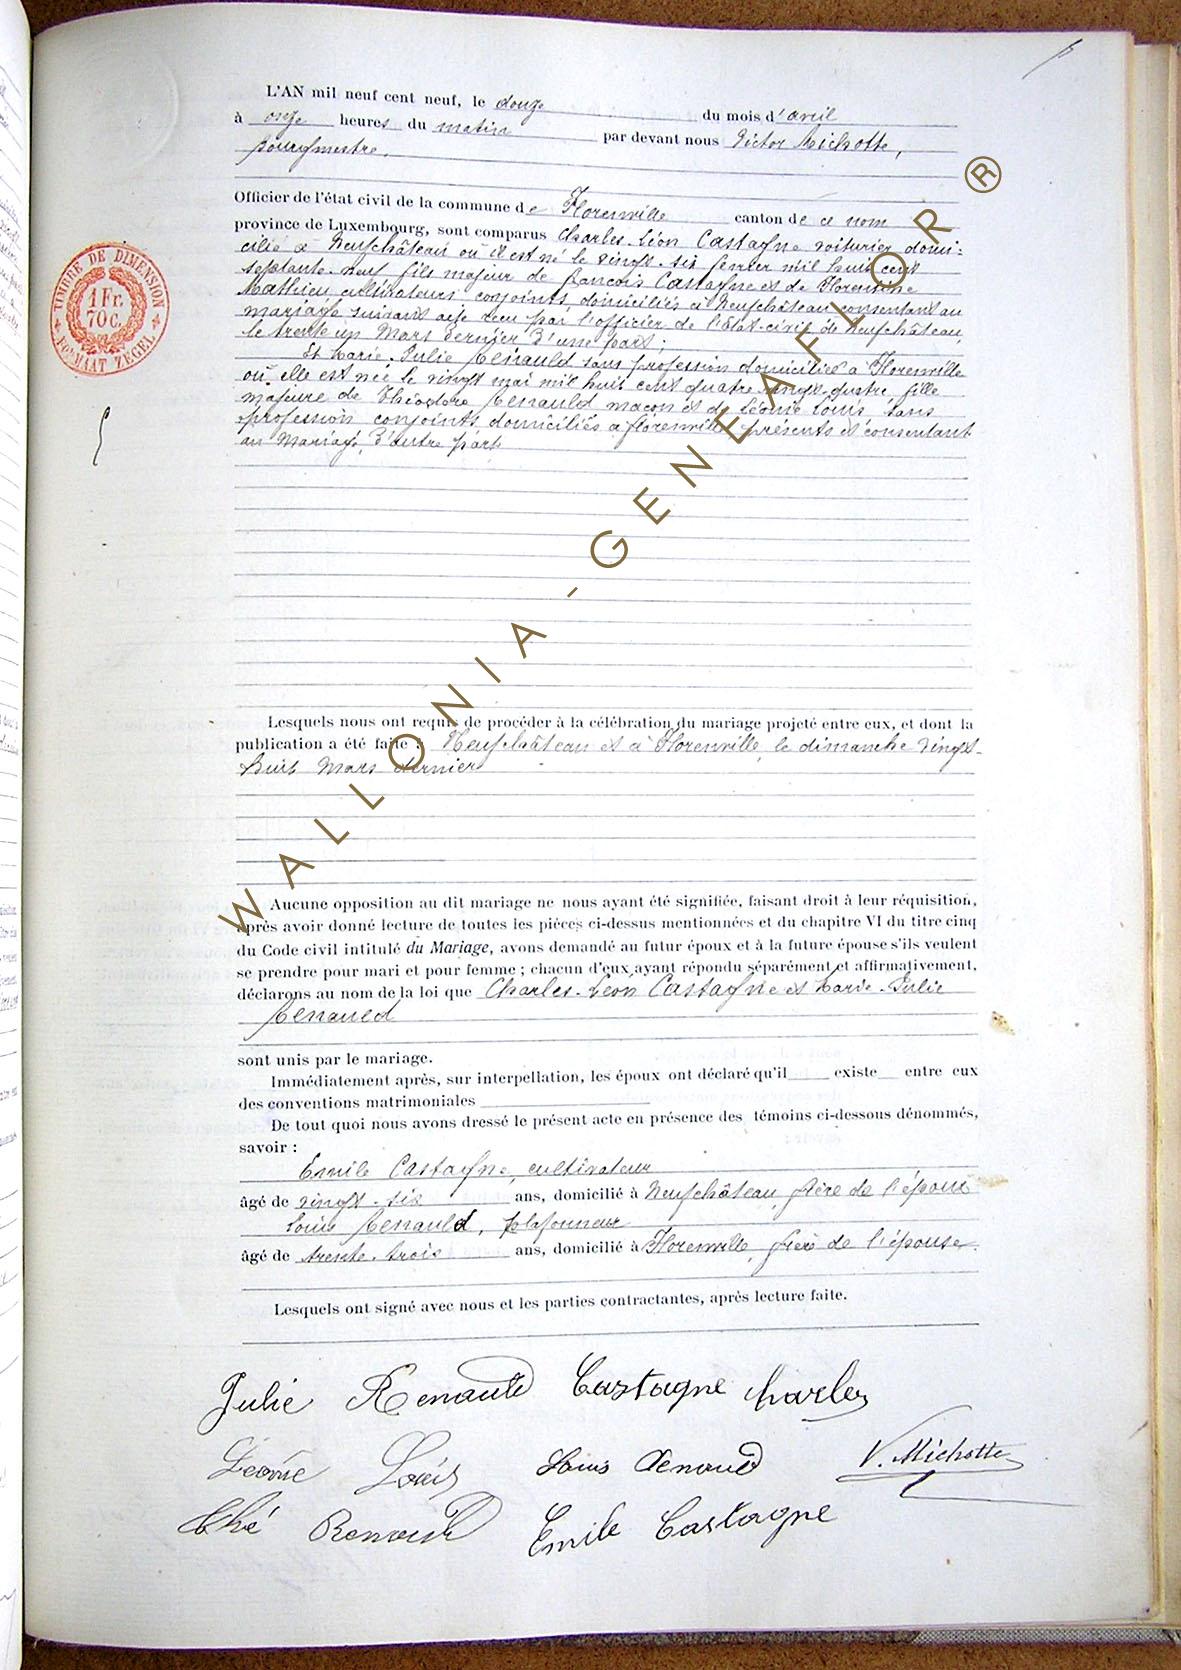 L'AN mil neuf cent neuf, le douze du mois d'avril
à onze heures du matin par devant nous Victor Michotte,
Bourgmestre,
Officier de l'état civil de la commune de Florenville canton de ce nom
province de Luxembourg, sont comparus Charles-Léon Castagne voiturier domi-
cilié à Neufchâteau où il est né le vingt-six février mil huit cent
septante-neuf fils majeur de François Castagne et de Florentine
Mathieu cultivateurs conjoints domiciliés à Neufchâteau consentant au
mariage suivant acte reçu par l'officier de l'état-civil de Neufchâteau,
le trente un Mars dernier d'une part;
Et Marie-Julie Renauld sans profession domiciliée à Florenville
où elle est née le vingt mai mil huit cent quatre vingt-quatre, fille
majeure de Théodore Renauld maçon et de Léonie Louis, sans
profession conjoints domiciliés à Florenville présents et consentant
au mariage, d'autre part
TIMBRE DE DIMENSION
1 Fr.
70 C.
FORMAAT ZEGEL
Lesquels nous ont requis de procéder à la célébration du mariage projeté entre eux, et dont la
publication a été faite à Neufchâteau et à Florenville, le dimanche vingt-
huit Mars dernier
Aucune opposition au dit mariage ne nous ayant été signifiée, faisant droit à leur réquisition,
après avoir donné lecture de toutes les pièces ci-dessus mentionnées et du chapitre VI du titre cinq
du Code civil intitulé du Mariage, avons demandé au futur époux et à la future épouse s'ils veulent
se prendre pour mari et pour femme ; chacun d'eux ayant répondu séparément et affirmativement,
déclarons au nom de la loi que Charles-Léon Castagne et Marie-Julie
Renauld
sont unis par le mariage.
Immédiatement après, sur interpellation, les époux ont déclaré qu'il existe entre eux
des conventions matrimoniales
De tout quoi nous avons dressé le présent acte en présence des témoins ci-dessous dénommés,
savoir :
Emile Castagne, cultivateur
âgé de vingt-six ans, domicilié à Neufchâteau, frère de l'époux
Louis Renauld, plafonneur
âgé de trente-trois ans, domicilié à Florenville, frère de l'épouse.
Lesquels ont signé avec nous et les parties contractantes, après lecture faite.
Julie Renauld Castagne Charles
Léonie Louis Louis Renauld V. Michotte
Thé Renauld Emile Castagne
WALLONIA-GENEAFLOR ®